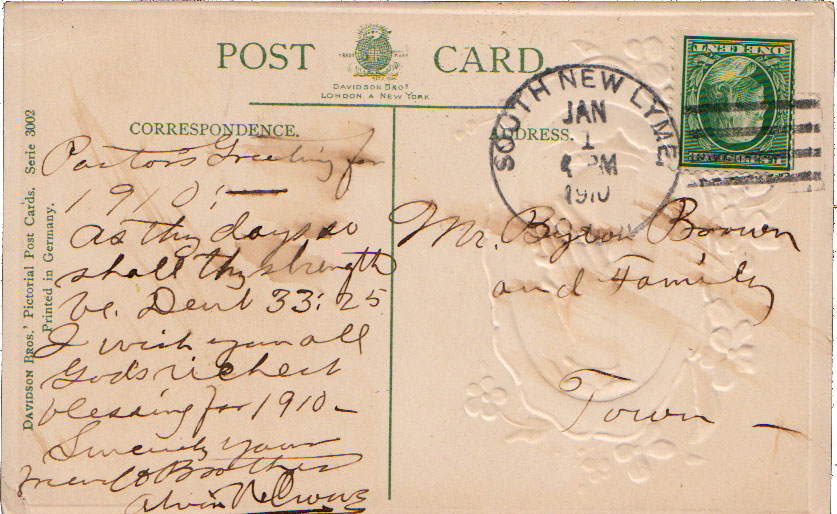 POST CARD
TRADE MARK
DAVIDSON BROS
LONDON & NEW YORK.
CORRESPONDENCE.
ADDRESS.
SOUTH NEW LYME,
JAN
1
PM
1910
DAVIDSON BROS.' Pictorial Post Cards. Serie 3002
Printed in Germany.
Pastor's Greeting for
1910!
As thy days so
shall thy strength
be. Deut 33:25
I wish you all
God's richest
blessing for 1910—
Sincerely your
friend & Brother
Alvin
Mr. Byron Brown
and Family
Town —